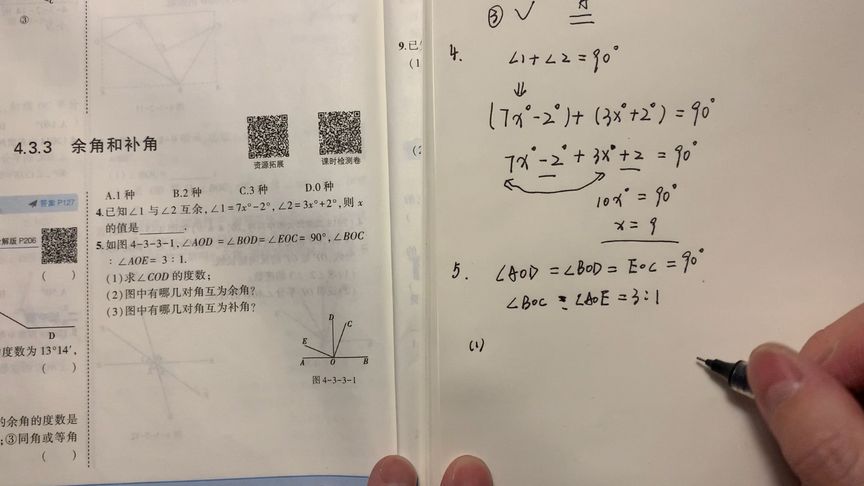 ③
4.3.3 余角和补角
资源拓展
课时检测卷
答案P127
解版 P206
( )
D
度数为 13°14′,
( )
的余角的度数是
;③同角或等角
( )
A.1 种 B.2 种 C.3 种 D.0 种
4.已知∠1 与∠2 互余,∠1=7x°-2°,∠2=3x°+2°,则 x
的值是________.
5.如图4-3-3-1,∠AOD =∠BOD=∠EOC= 90°,∠BOC
∶∠AOE= 3∶1.
(1)求∠COD 的度数;
(2)图中有哪几对角互为余角?
(3)图中有哪几对角互为补角?
D
C
E
A O B
图4-3-3-1
9.已
(1
(2
③ ✓
4. ∠1+∠2=90°
⇓
(7x°-2°)+(3x°+2°)=90°
7x°-2°+3x°+2=90°
10x°=90°
x=9
5. ∠AOD=∠BOD=EOC=90°
∠BOC:∠AOE=3:1
(1)